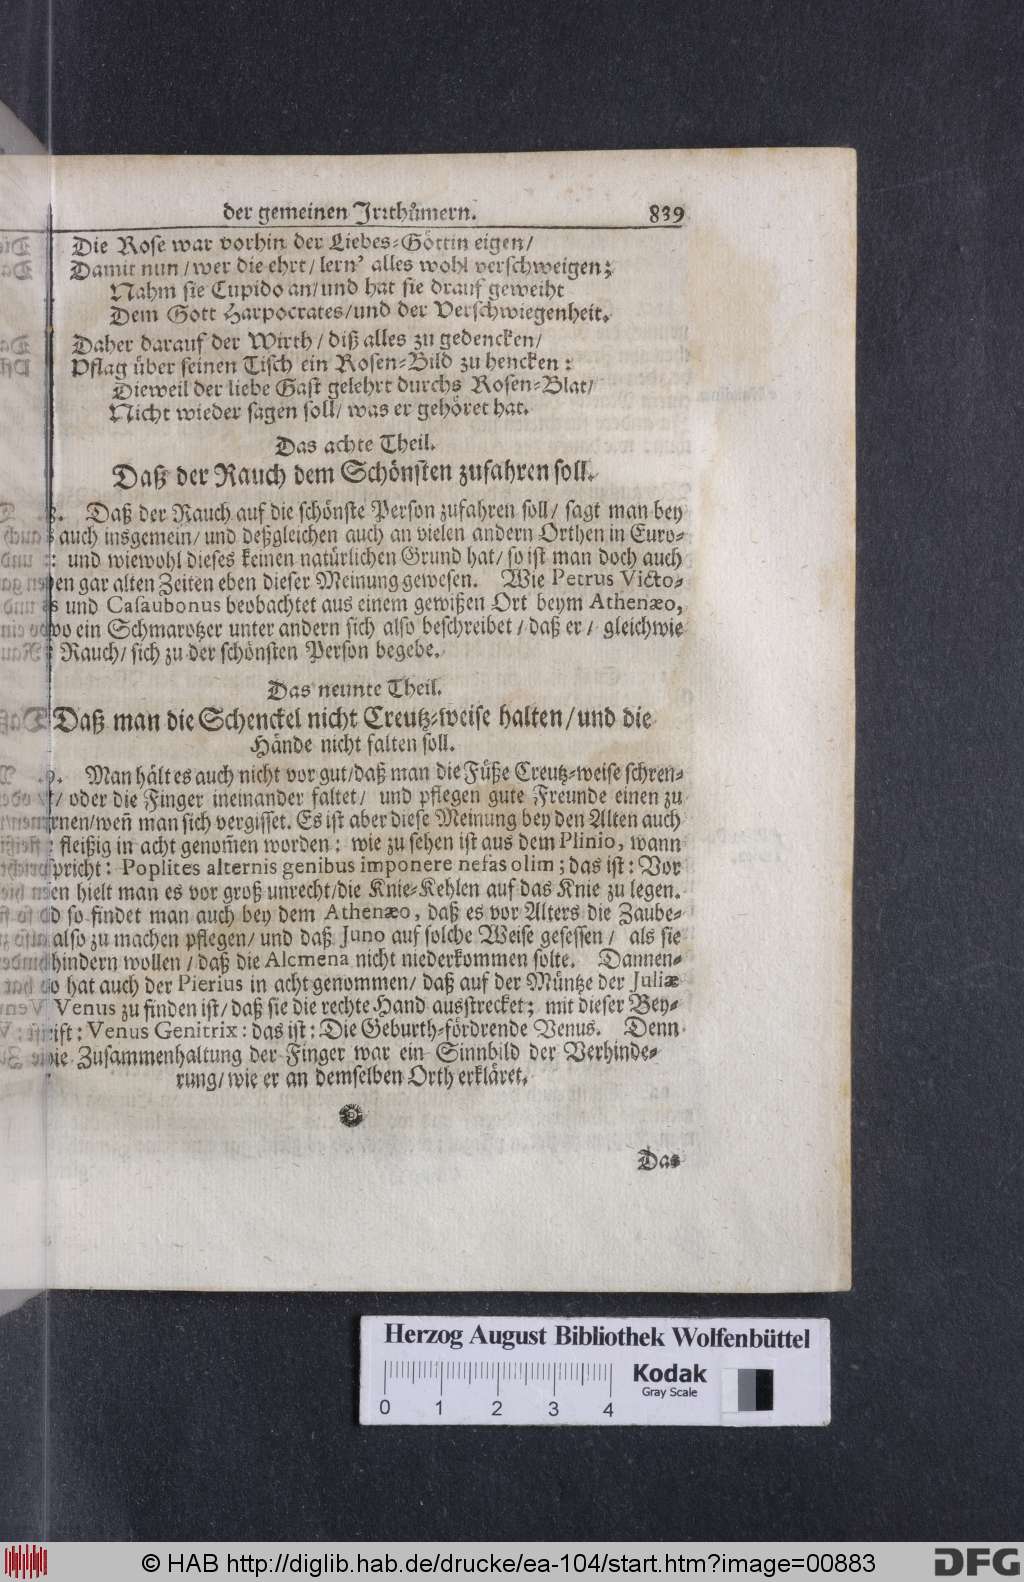 der gemeinen Irrthůmern. 839
Die Rose war vorhin der Liebes-Göttin eigen/
Damit nun/wer die ehrt/lern' alles wohl verschweigen;
Nahm sie Cupido an/und hat sie drauf geweiht
Dem Gott Harpocrates/und der Verschwiegenheit.
Daher darauf der Wirth/diß alles zu gedencken/
Pflag über seinen Tisch ein Rosen-Bild zu hencken:
Dieweil der liebe Gast gelehrt durchs Rosen-Blat/
Nicht wieder sagen soll/was er gehöret hat.
Das achte Theil.
Daß der Rauch dem Schönsten zufahren soll.
8. Daß der Rauch auf die schönste Person zufahren soll/sagt man bey
auch insgemein/und deßgleichen auch an vielen andern Orthen in Euro-
: und wiewohl dieses keinen natürlichen Grund hat/so ist man doch auch
gar alten Zeiten eben dieser Meinung gewesen. Wie Petrus Victo-
und Casaubonus beobachtet aus einem gewißen Ort beym Athenæo,
wo ein Schmarotzer unter andern sich also beschreibet/daß er/gleichwie
Rauch/sich zu der schönsten Person begebe.
Das neunte Theil.
Daß man die Schenckel nicht Creutz-weise halten/und die
Hände nicht falten soll.
9. Man hält es auch nicht vor gut/daß man die Füße Creutz-weise schren-
/oder die Finger ineinander faltet/ und pflegen gute Freunde einen zu
/weñ man sich vergisset. Es ist aber diese Meinung bey den Alten auch
fleißig in acht genom̃en worden: wie zu sehen ist aus dem Plinio, wann
spricht: Poplites alternis genibus imponere nefas olim; das ist: Vor
hielt man es vor groß unrecht/die Knie-Kehlen auf das Knie zu legen.
so findet man auch bey dem Athenæo, daß es vor Alters die Zaube-
also zu machen pflegen/und daß Juno auf solche Weise gesessen/ als sie
hindern wollen/daß die Alcmena nicht niederkommen solte. Dannen-
hat auch der Pierius in acht genommen/daß auf der Müntze der Juliæ
Venus zu finden ist/daß sie die rechte Hand ausstrecket; mit dieser Bey-
: Venus Genitrix: das ist: Die Geburth-fördrende Venus. Denn
die Zusammenhaltung der Finger war ein Sinnbild der Verhinde-
rung/wie er an demselben Orth erkläret.
Das
Herzog August Bibliothek Wolfenbüttel
Kodak
Gray Scale
0 1 2 3 4
© HAB http://diglib.hab.de/drucke/ea-104/start.htm?image=00883
DFG